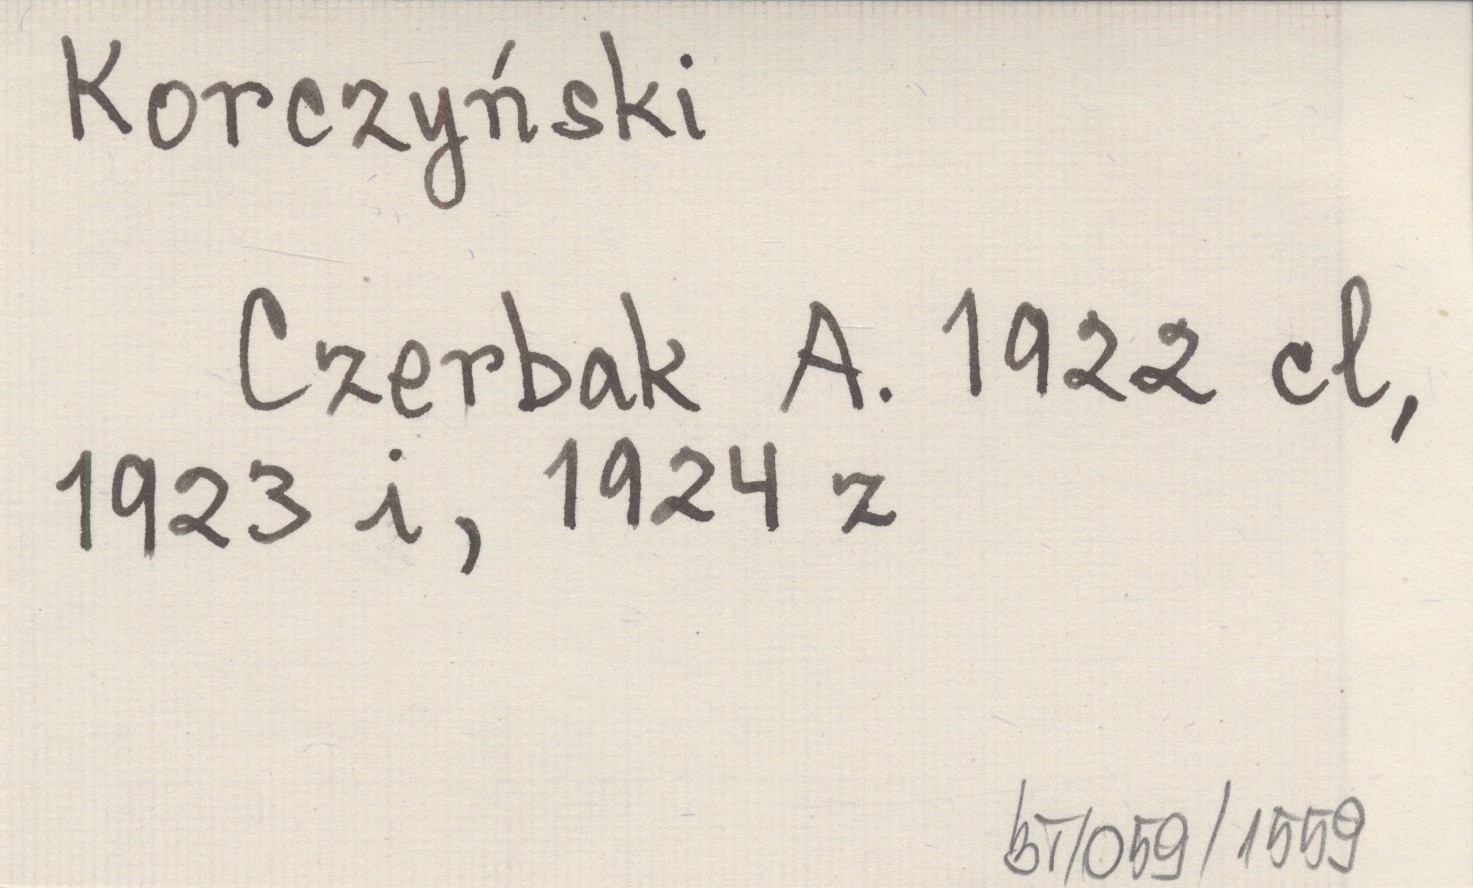 Korczyński
Czerbak A. 1922 cl,
1923 i, 1924 z
bT/059/1559